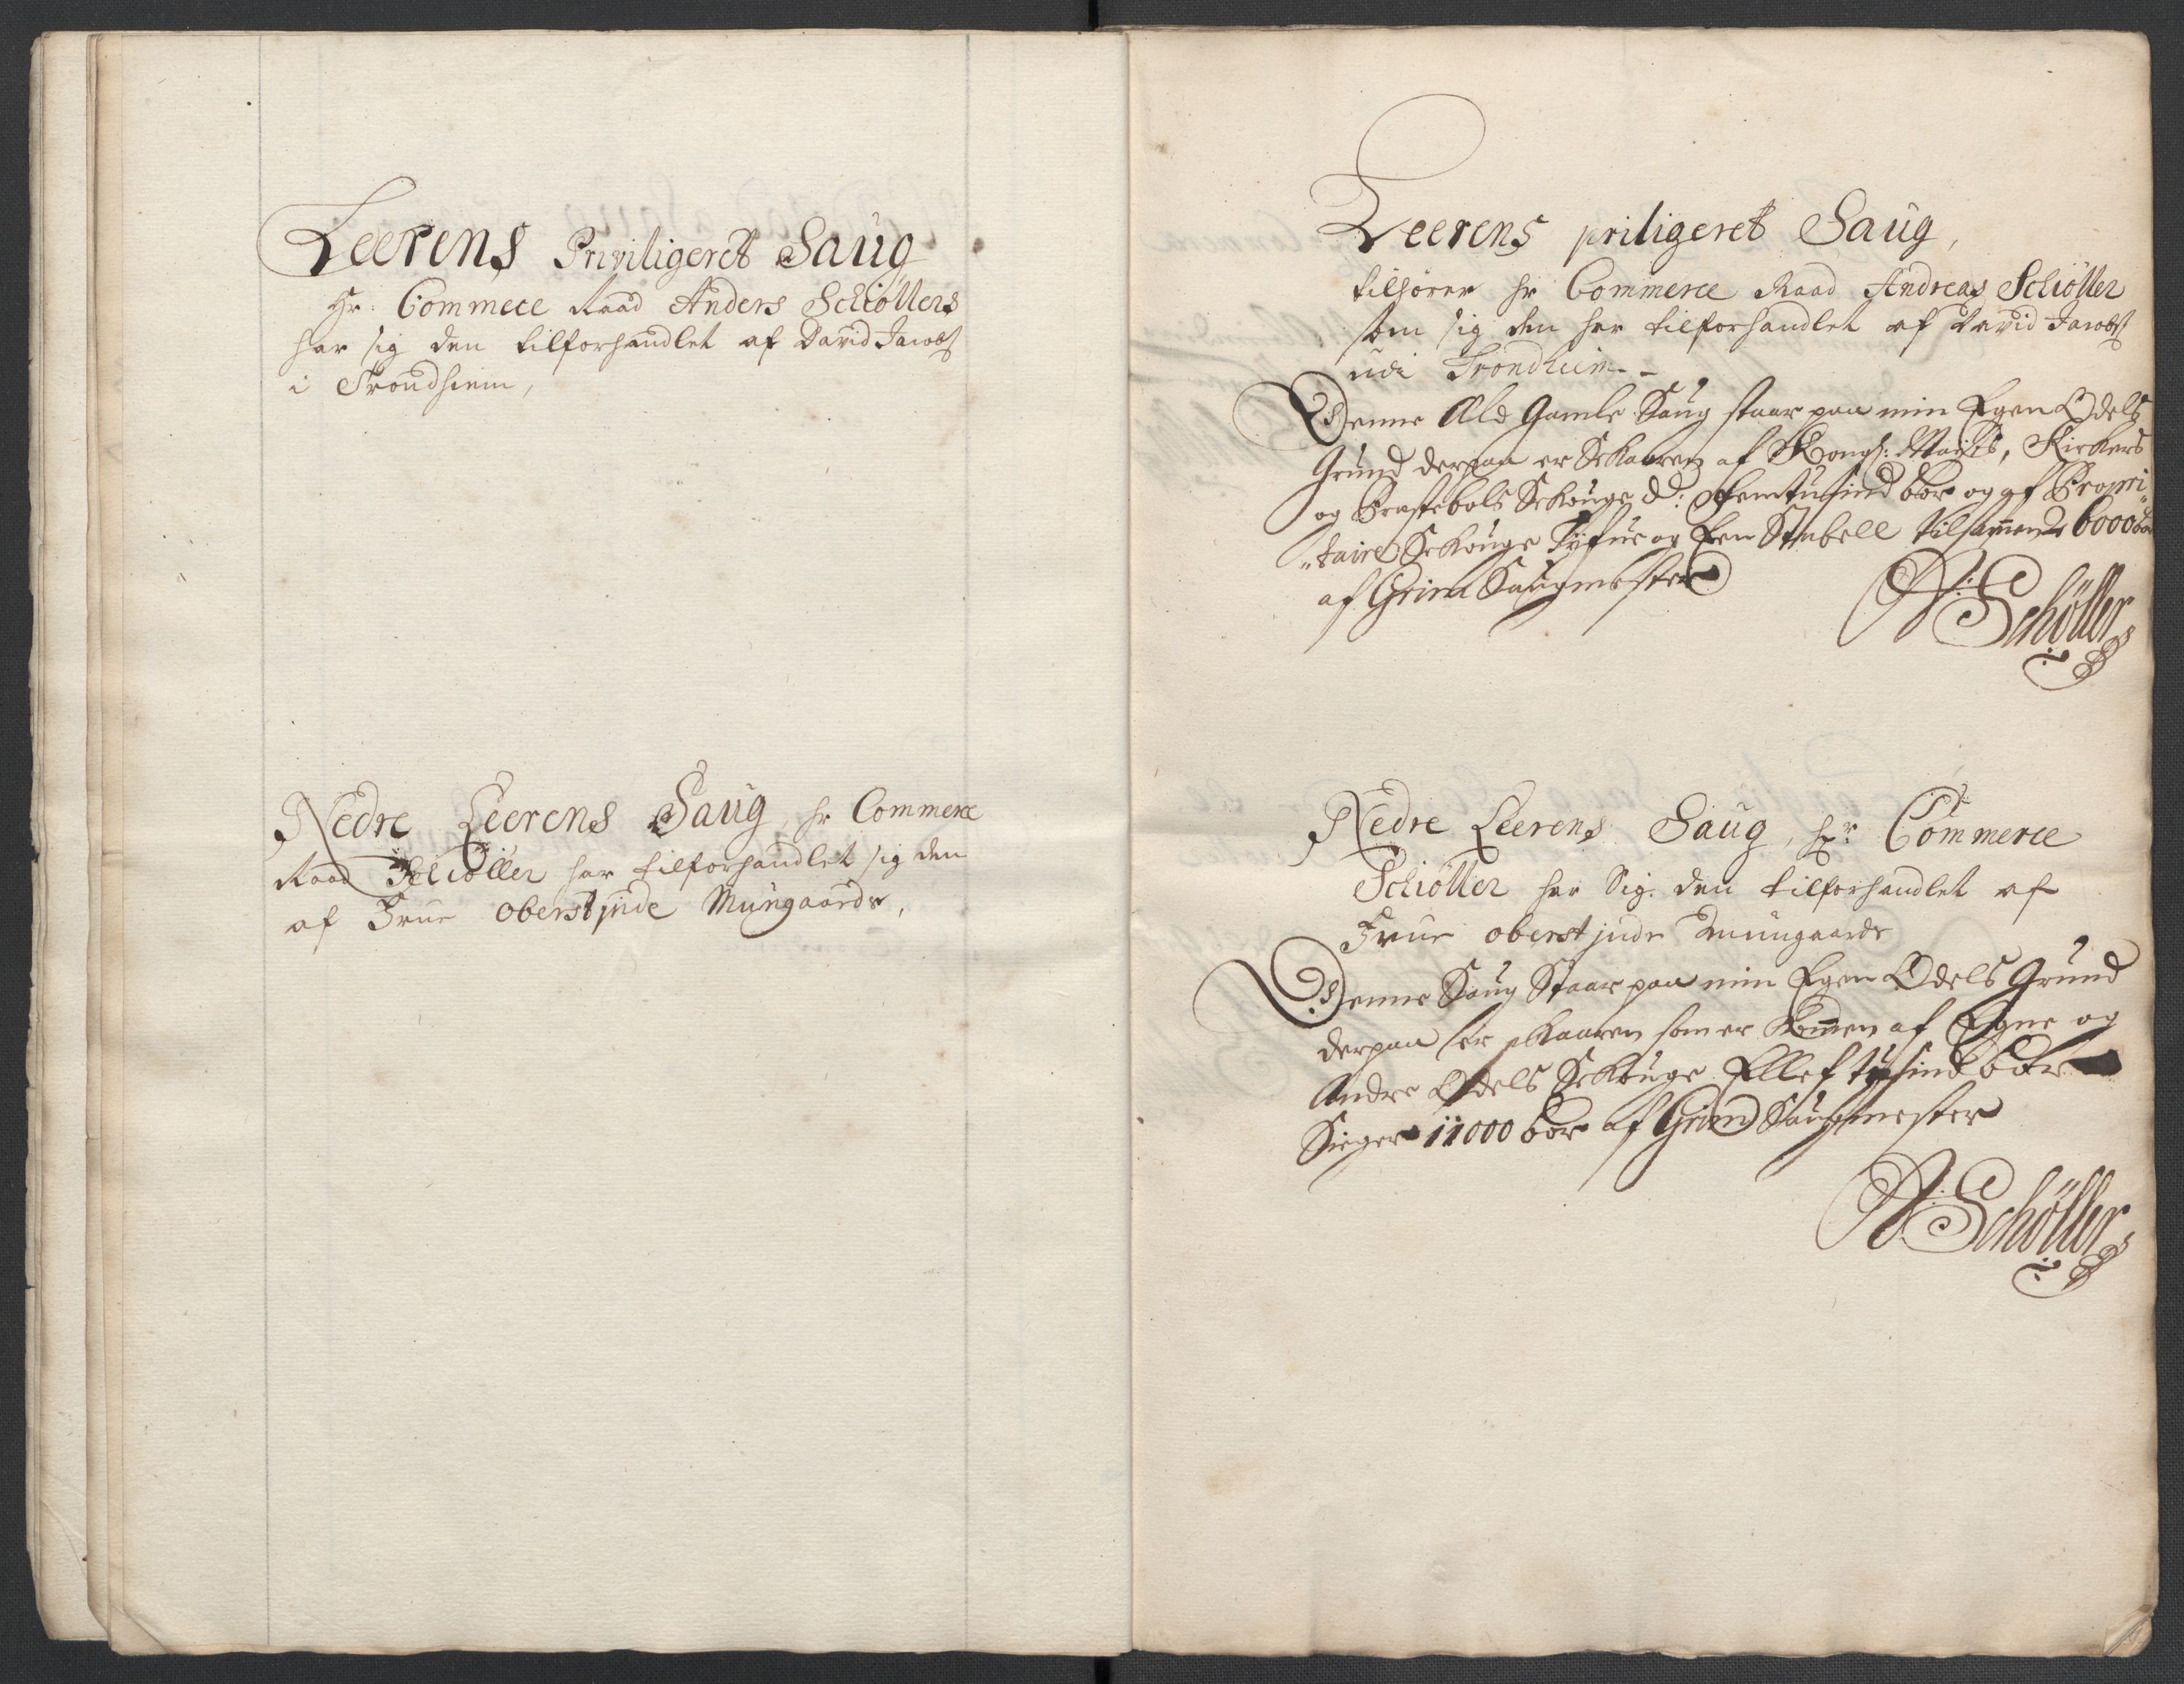 Leerens Priviligeret Saug
Hr. Commece Raad Anders Schiøllers
har sig den tilforhandlet af David Jacobs
i Trondhiem,
Nedre Leerens Saug, hr Commerce
Raad Schiøller har tilforhandlet sig den
af Frue oberstinde Mungaards,
Leerens priligeret Saug,
tilhører hr Commerce Raad Andreas Schiøller
som sig den har tilforhandlet af David Jacobs
udi Trondhiem--
Denne Ald Gamle Saug staar paa min Egen Odels
Grund derpaa er Skaaren af Kongl: Maÿts, Kirkens
og Præstebols Skouge d: femtusind bor og af Propri
„taire Skouge Tÿfue og fem Stabell tilsammen 6000 bor
af Grim Saugmester
A: Schöller
Nedre Leerens Saug, hr: Commerce
Schiøller har Sig den tilforhandlet af
Frue oberstinde Mungaards
Denne Saug Staar paa min Egen Odels Grund
derpaa er skaaren som er kommen af Egne og
Andre Odels Skouge Ellef tusind bor
Siger 11000 bor af Grim Saugmester
A: Schöller